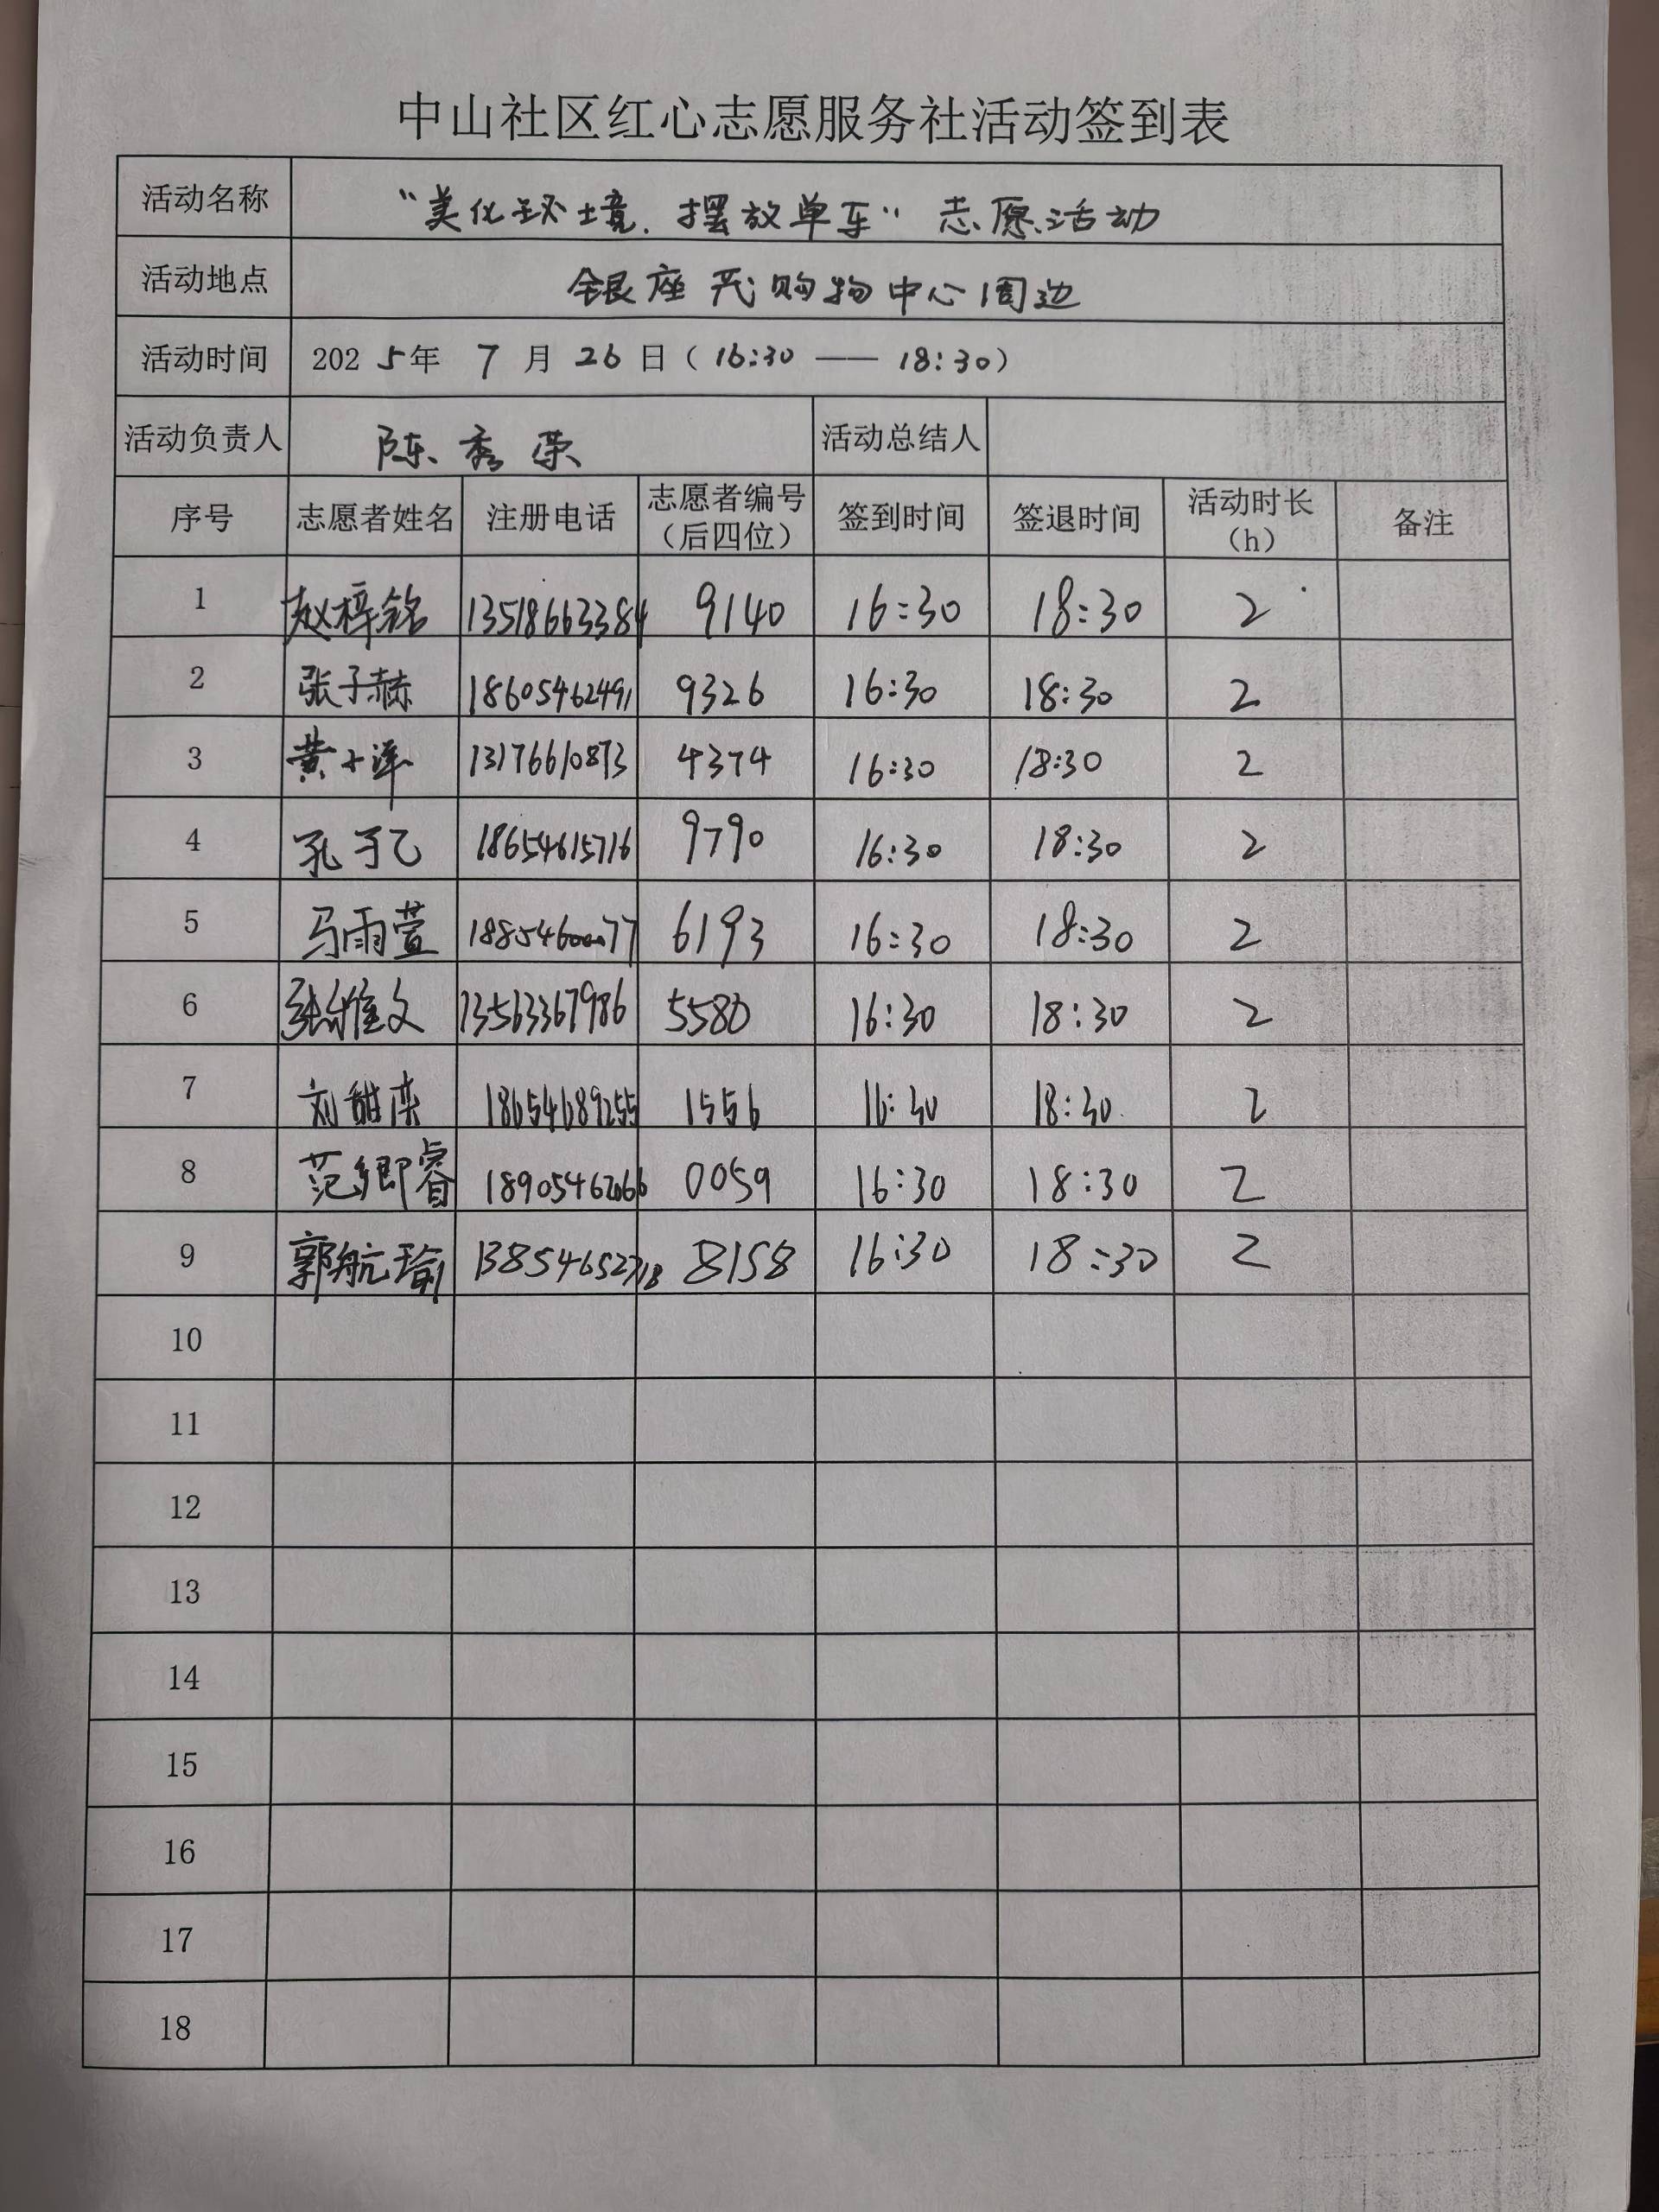 中山社区红心志愿服务社活动签到表
活动名称 “美化环境.摆放单车” 志愿活动
活动地点 银座茂购物中心周边
活动时间 2025年 7 月 26 日（16:30 —— 18:30）
活动负责人 陈秀荣 活动总结人
序号 志愿者姓名 注册电话 志愿者编号（后四位） 签到时间 签退时间 活动时长（h） 备注
1 赵梓铭 13518663384 9140 16:30 18:30 2
2 张子赫 18605462491 9326 16:30 18:30 2
3 黄小泽 13176610873 4374 16:30 18:30 2
4 孔于乙 18654615716 9790 16:30 18:30 2
5 马雨萱 18854600077 6193 16:30 18:30 2
6 张雅文 13563367986 5580 16:30 18:30 2
7 刘甜 18654689255 1556 16:30 18:30 2
8 范卿睿 18905462066 0059 16:30 18:30 2
9 郭航瑜 13854652718 8158 16:30 18:30 2
10
11
12
13
14
15
16
17
18